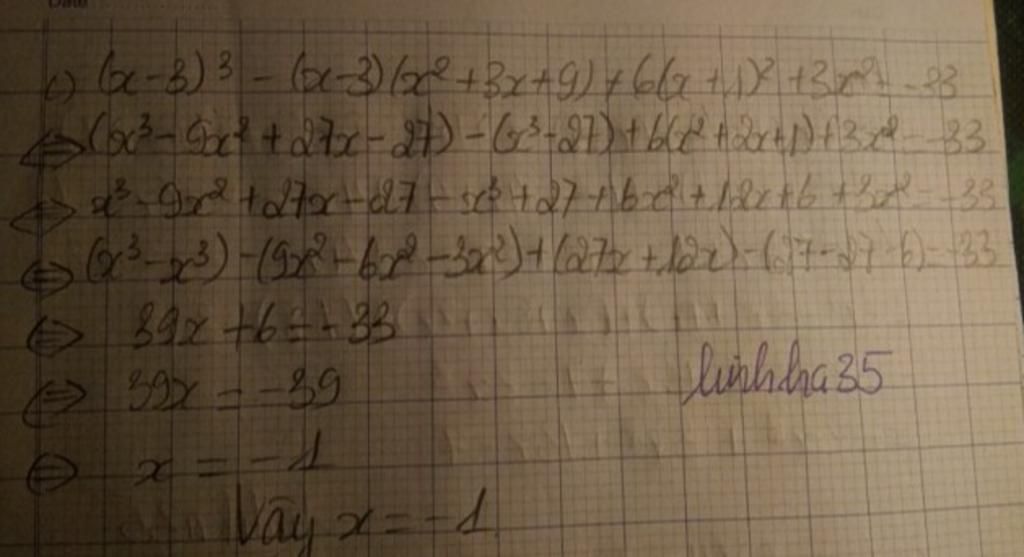 Date
c) (x-3)³ - (x-3)(x²+3x+9) + 6(x+1)² + 3x² = -33
⇔ (x³ - 9x² + 27x - 27) - (x³-27) + 6(x²+2x+1) + 3x² = -33
⇔ x³ - 9x² + 27x - 27 - x³ + 27 + 6x² + 12x + 6 + 3x² = -33
⇔ (x³-x³) - (9x² - 6x² - 3x²) + (27x + 12x) - (27 - 27 - 6) = -33
⇔ 39x + 6 = -33
⇔ 39x = -39
linhdha35
⇔ x = -1
Vậy x = -1